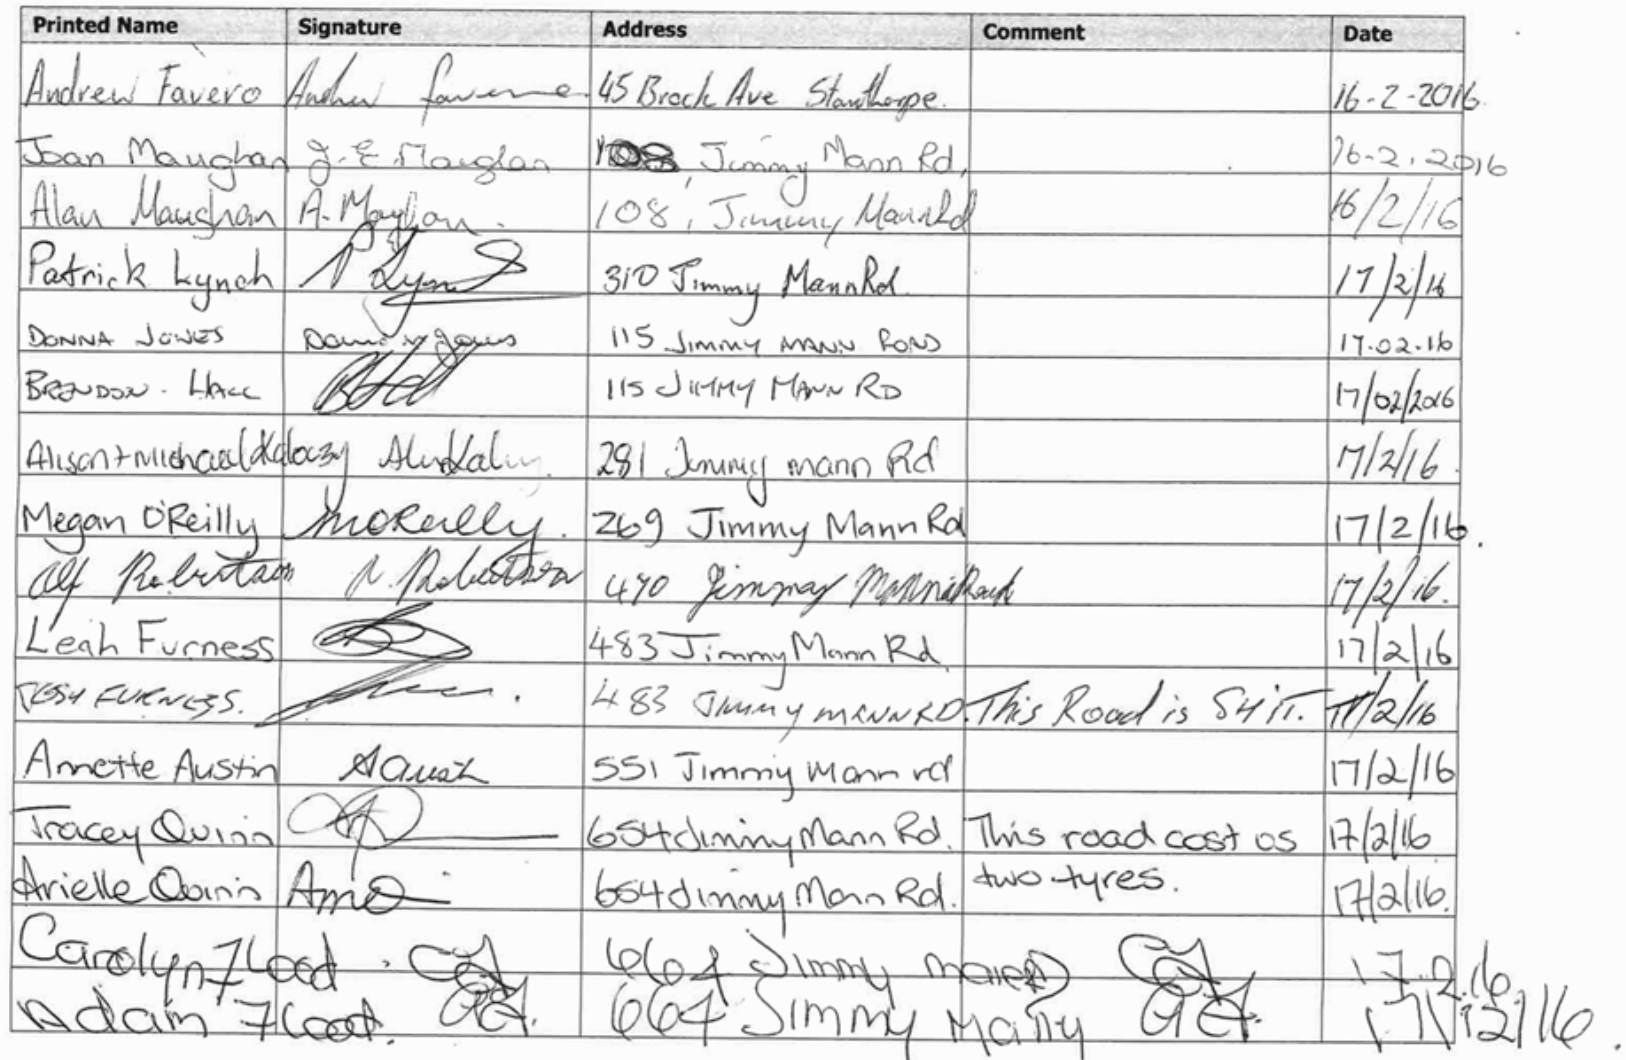 Printed Name Signature Address Comment Date
Andrew Favero Andrew Favero 45 Brock Ave Stanthorpe. 16-2-2016.
Joan Maughan J. E. Maughan 108, Jimmy Mann Rd, 16-2.2016
Alan Maughan A. Maughan. 108, Jimmy Mann Rd 16/2/16
Patrick Lynch P Lynch 310 Jimmy Mann Rd. 17/2/16
DONNA JONES Donna Jones 115 JIMMY MANN ROAD 17.02.16
BRENDON. HALL 115 JIMMY MANN RD 17/02/2016
Alison + Michael 281 Jimmy mann Rd 17/2/16.
Megan O'Reilly MOReilly. 269 Jimmy Mann Rd 17/2/16.
Alf Robertson A. Robertson 470 Jimmy Mann Road 17/2/16.
Leah Furness 483 Jimmy Mann Rd. 17/2/16
FURNESS. 483 Jimmy MANN RD. This Road is SHIT. 17/2/16
Annette Austin AAustin 551 Jimmy Mann rd 17/2/16
Tracey Quinn 654 Jimmy Mann Rd. This road cost us 17/2/16
Arielle Quinn 654 Jimmy Mann Rd. two tyres. 17/2/16.
Carolyn Flood. 664 Jimmy 17.2.16
Adam Flood. 664 Jimmy 17/2/16.